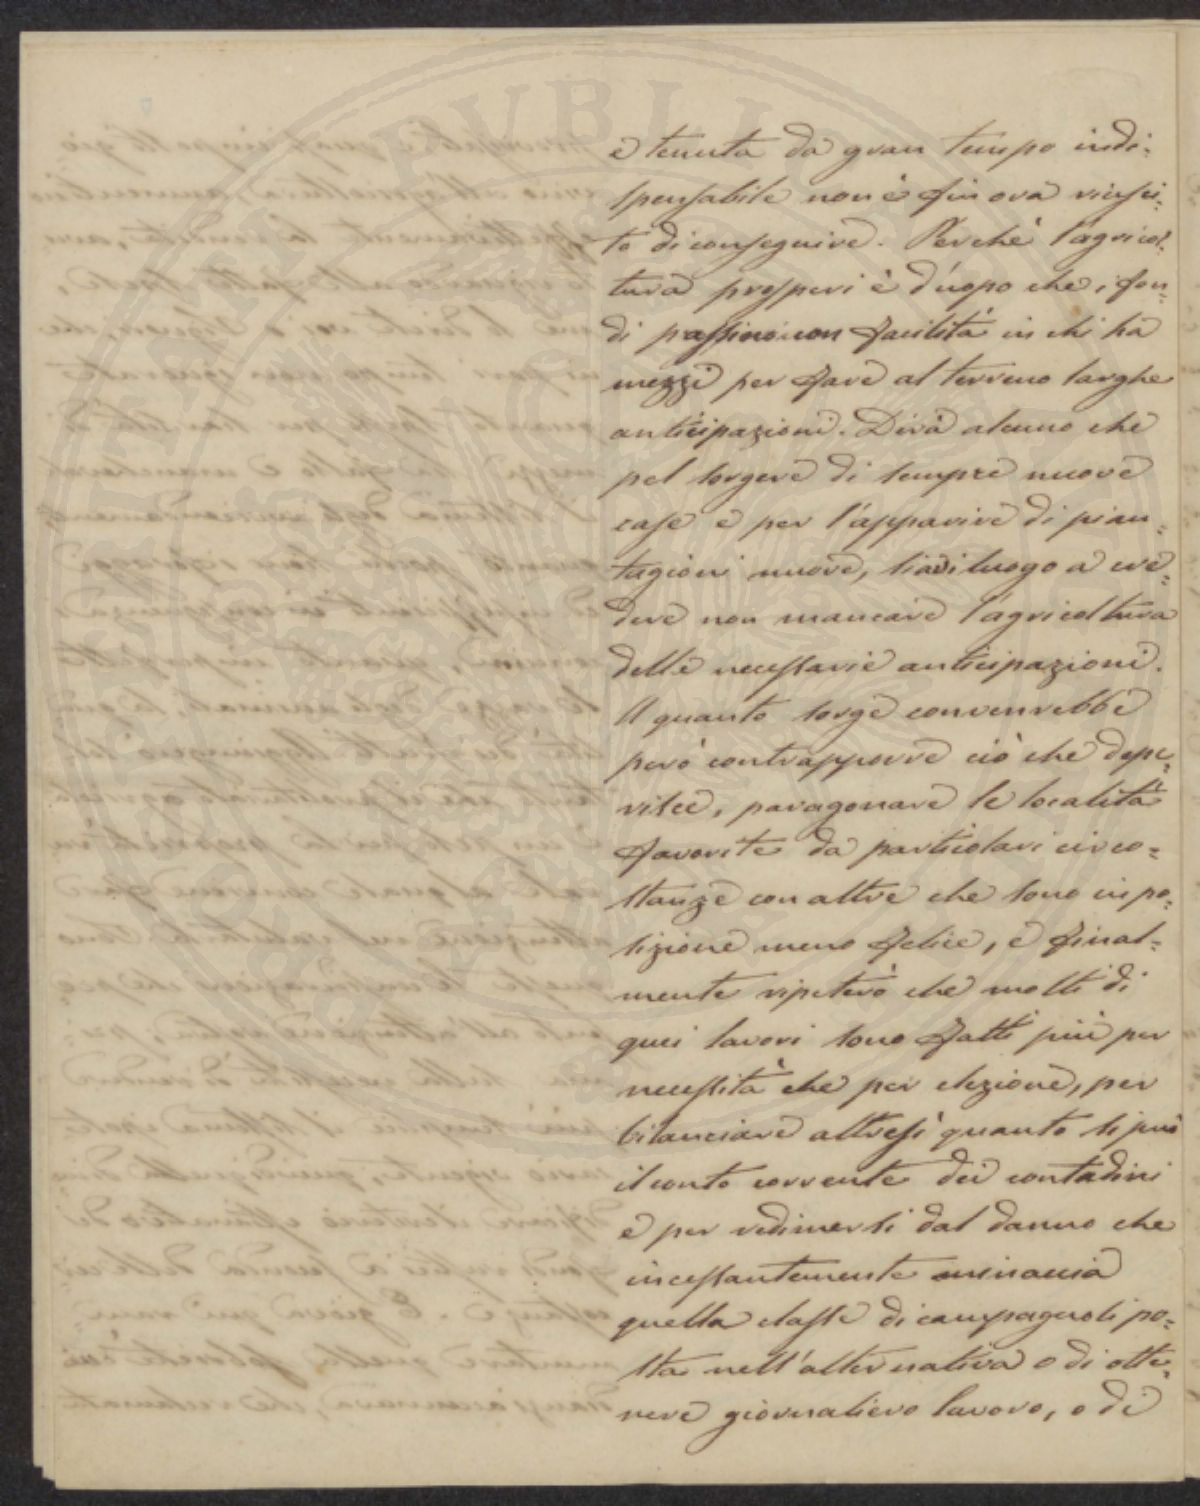 è tenuta da gran tempo indi-
spensabile non è fin ora riusci-
to di conseguire. Perchè l'agricol-
tura prosperi è d'uopo che i fon-
di passino con facilità in chi ha
mezzi per fare al terreno larghe
anticipazioni. Dirà alcuno che
pel sorgere di sempre nuove
case e per l'apparire di pian-
tagioni nuove, siavi luogo a cre-
dere non mancare l'agricoltura
delle necessarie anticipazioni.
A quanto sorge converrebbe
però contrapporre ciò che depe-
risce, paragonare le località
favorite da particolari circo-
stanze con altre che sono in po-
sizione meno felice, e final-
mente ripeterò che molti di
quei lavori sono fatti più per
necessità che per elezione, per
bilanciare altresì quanto si può
il conto corrente dei contadini
e per redimersi dal danno che
incessantemente minaccia
quella classe di campagnoli po-
sta nell'alternativa o di otte-
nere giornaliero lavoro, o di